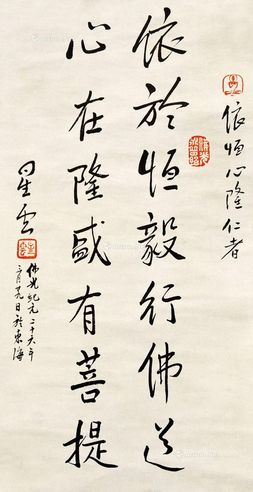 依恒心隆仁者
依於恒毅行佛道
心在隆盛有菩提
星雲
佛光紀元二十六年
於東海